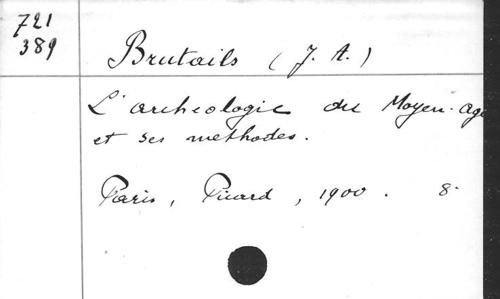 721
389
Brutails (J. A.)
L'archeologie du Moyen-age
et ses methodes.
Paris, Picard, 1900. 8°